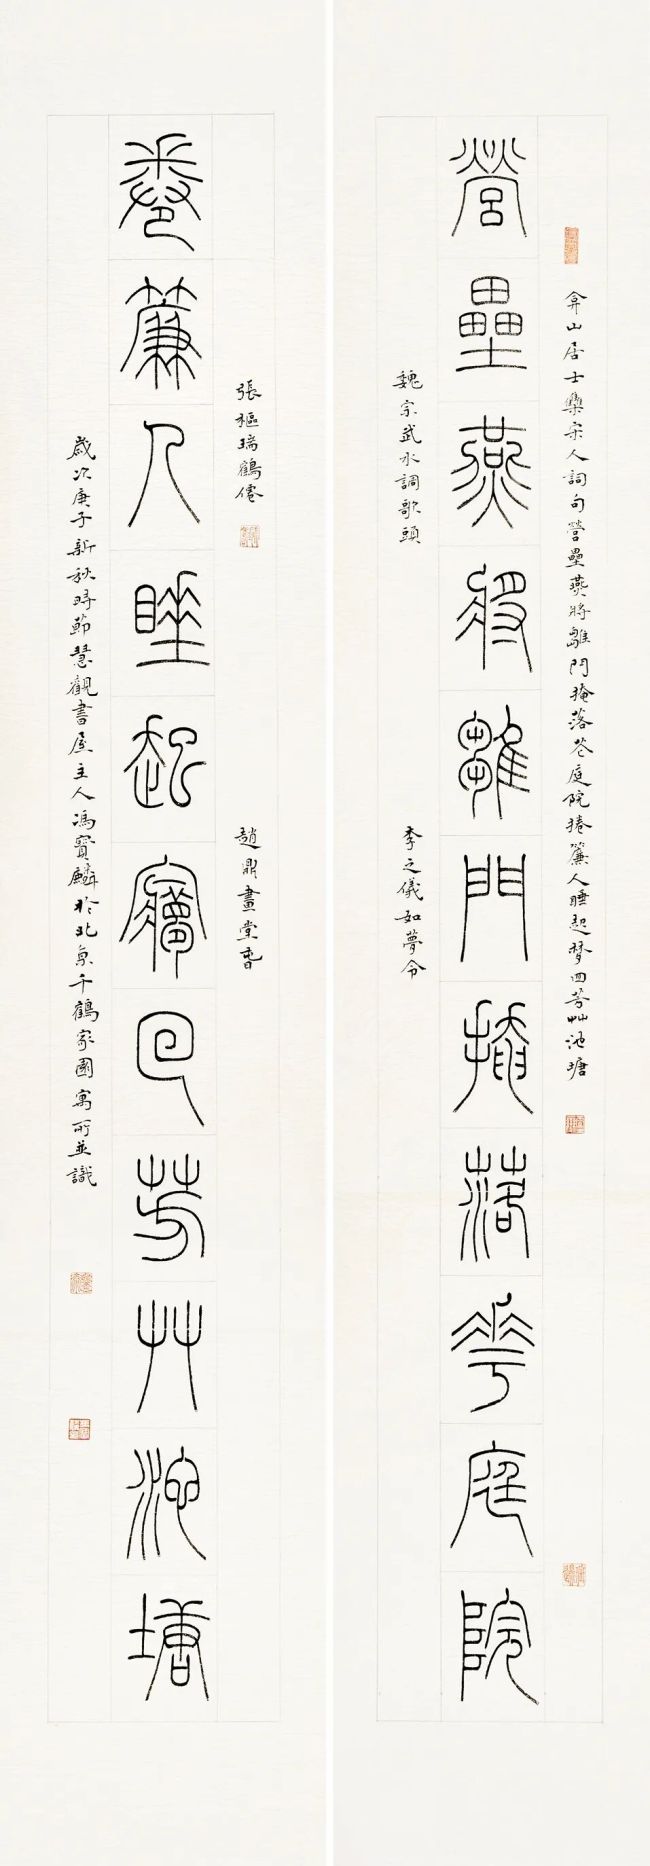 弇山居士集宋人詞句營壘燕將雛門掩落花庭院捲簾人睡起夢回芳艸池塘
營壘燕將雛門掩落華庭院
魏宗武水調歌頭
李之儀如夢令
張樞瑞鶴僊
趙鼎畫堂春
卷簾人睡起㝱回芳艸池塘
歲次庚子新秋時節慧觀書屋主人馮寶麟於北京千鶴家園寓所並識